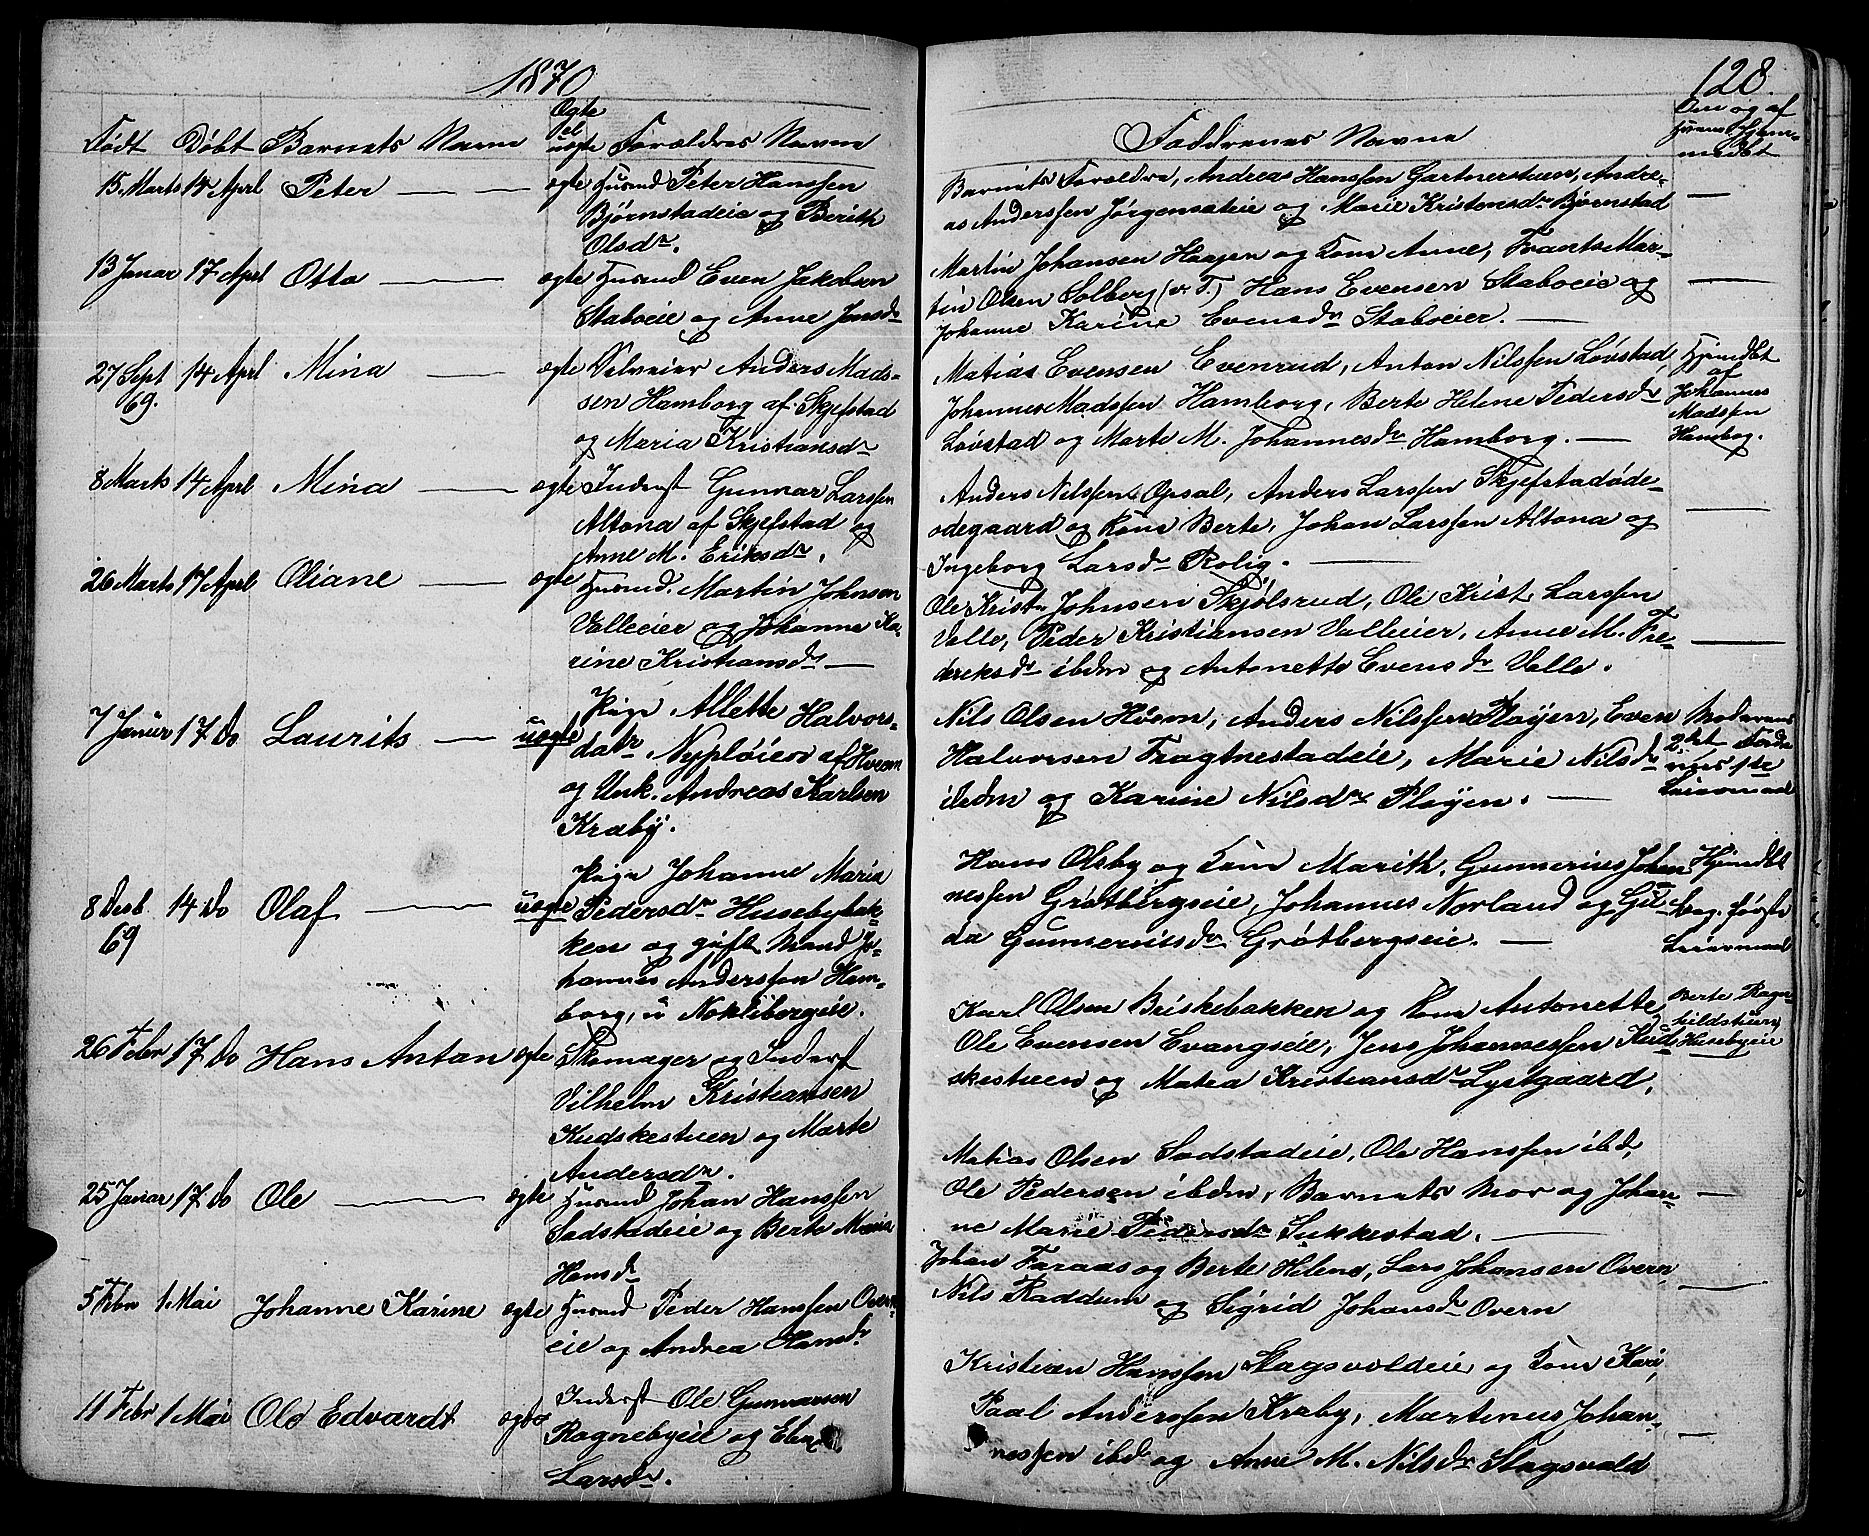 1870
128.
Født Døbt Barnets Navn Ægte el uægte Forældres Navne
Faddrenes Navne
Om og af hvem Hjemmedbt
15 Marts 14 April Peter — ægte Husmd Peter Hanssen
Bjørnstadeie og Berith
Olsdr.
Barnets Forældre, Andreas Hanssen Gartnerstuen, Andre-
as Anderssen Jørgensæteie og Marie Kristensdr Bjørnstad —
13 Januar 17 April Otto — ægte Husmd Even Jakobsen
Staboeie og Anne Jensdr
Martin Johansen Haagen og Kone Anne, Frants Mar-
tin Olsen Solberg (v. T.) Hans Evensen Staboeie og
Johanne Karine Evensdr Staboeier. —
27 Sept 69. 14 April Mina — ægte Selveier Anders Mads-
sen Hamborg af Skjefstad
og Maria Kristiansdr
Matias Evensen Evenrud, Anton Nilssen Lovstad,
Johannes Madssen Hamborg, Berte Helene Pedersdr
Lovstad og Marte M. Johannesdr Hamborg. —
Hjemdbt
af
Johannes
Madssen
Hamborg.
8 Marts 14 April Mina — ægte Inderst Gunnar Larssen
Altona af Skjefstad og
Anne M. Eriksdr.
Anders Nilssen Opsal, Anders Larssen Skjefstadøde-
ødegaard og Kone Berte, Johan Larssen Altona og
Ingeborg Larsdr Rolig. —
26 Marts 17 April Oliane — ægte Husmd. Martin Johnsen
Valleeier og Johanne Ka-
rine Kristiansdr —
Ole Kristn Johnsen Skjølsrud, Ole Krist. Larssen
Valle, Peder Kristiansen Valleier, Anne M. Fre-
deriksdr ibdm og Antonette Evensdr Valle.
7 Januar 17 do Laurits — uægte Pige Allette Halvors-
datr Nypløieie af Hveem
og Unk. Andreas Karlsen
Kraby.
Nils Olsen Hveem, Anders Nilssen Pløyen, Even
Halvorsen Fragtnestadeie, Marie Nilsdr
ibdm og Karine Nilsdr Pløyen. —
Moderens
2det Fade-
rens 1ste
Leiermaal
8 Desb 69 14 do Olaf — uægte Pige Johanne Maria
Pedersdr Husebybak-
ken og gift Mand Jo-
hannes Anderssen Ham-
borg, u Noklebergeie.
Hans Olsby og Kone Marith, Gunnerius Johan-
nessen Grøtbergseie, Johannes Norland og Gu-
da Gunneriusdr Grøtbergseie. —
Hjemdbt
Beg. første
Leiermaal
26 Febr 17 do Hans Anton ægte Skomager og Inderst
Vilhelm Kristiansen
Kudskestuen og Marte
Andersdr.
Karl Olsen Briskebakken og Kone Antonette,
Ole Evensen Evangseie, Jens Johannessen Kud-
skestuen og Matea Kristiansdr Lystgaard,
Berte Ragn-
hildstuen
Husebyeie
25 Januar 17 do Ole — ægte Husmd Johan Hanssen
Sadstadeie og Berte Maria
Hansdr
Matias Olsen Sadstadeie, Ole Hanssen ibd,
Ole Pedersen ibdm, Barnets Mor og Johan-
ne Marie Pedersdr Sukkestad. —
5 Febr 1 Mai Johanne Karine ægte Husmd Peder Hanssen Overn-
eie og Andrea Hansdr
Johan Faraas og Berte Helene, Lars Johansen Overn,
Nils Raddum og Sigrid Johansdr Overn
11 Febr 1 Mai Ole Edvardt ægte Inderst Ole Gunnarsen
Ragnebyeie og Elen
Larsdr.
Kristian Hanssen Slagsvoldeie og Kone Kari,
Paal Anderssen Kraby, Martinus Johan-
nessen ibd og Anne M. Nilsdr Slagsvold